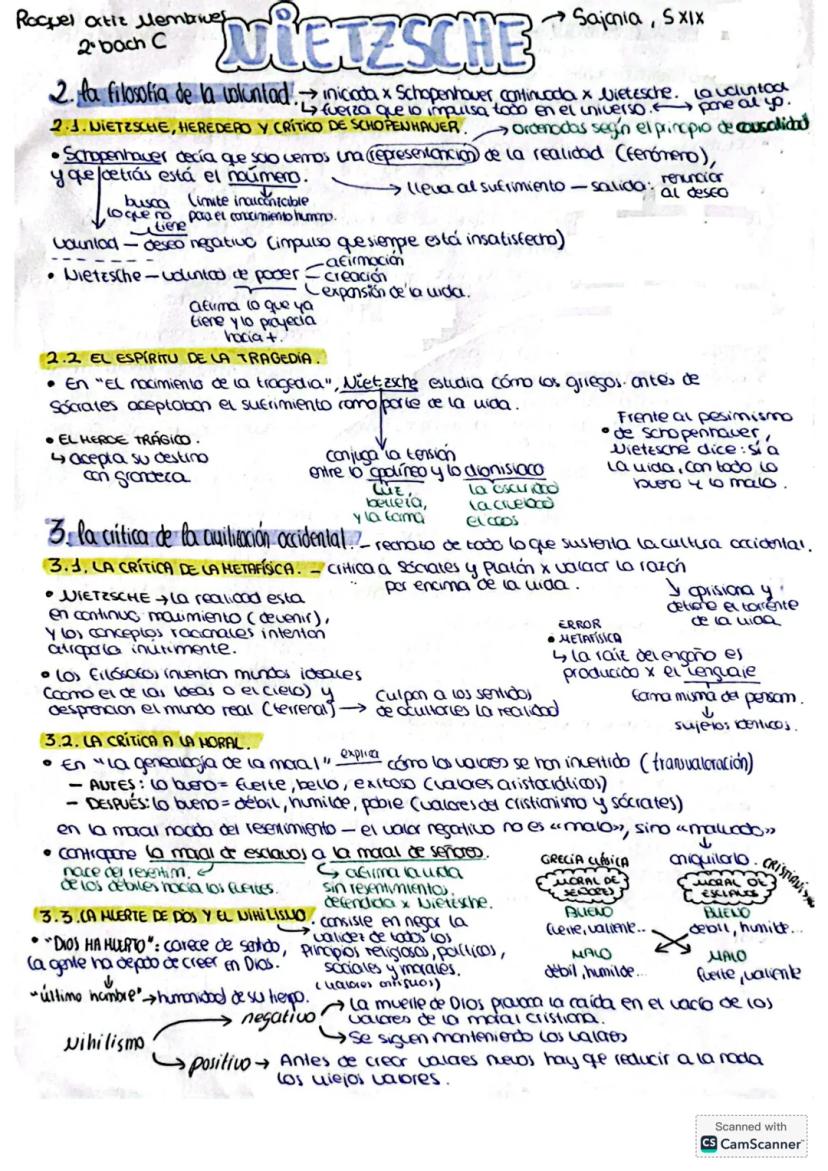 Raquel Ortiz Membrives
2º bach C
NIETZSCHE → Sajonia, S XIX
2. la filosofía de la voluntad. → iniciada x Schopenhauer continuada x Nietzsche. La voluntad
↳ fuerza que lo impulsa todo en el universo. ↔ pone al yo.
2.1. NIETZSCHE, HEREDERO Y CRÍTICO DE SCHOPENHAUER. → ordenadas según el principio de causalidad
• Schopenhauer decía que solo vemos una representación de la realidad (fenómeno),
y que detrás está el noúmeno.
→ lleva al sufrimiento — salida: renunciar
al deseo
busca
lo que no
tiene
límite inalcanzable
para el conocimiento humano.
voluntad — deseo negativo (impulso que siempre está insatisfecho)
• Nietzsche — voluntad de poder — afirmación
— creación
— expansión de la vida.
afirma lo que ya
tiene y lo proyecta
hacia +.
2.2 EL ESPÍRITU DE LA TRAGEDIA.
• En "El nacimiento de la tragedia", Nietzsche estudia cómo los griegos antes de
Sócrates aceptaban el sufrimiento como parte de la vida.
• EL HEROE TRÁGICO.
↳ acepta su destino
con grandeza
conjuga la tensión
entre lo apolíneo y lo dionisiaco
luz,
belleza,
y la forma
la oscuridad
la crueldad
el caos
Frente al pesimismo
• de Schopenhauer,
Nietzsche dice: sí a
la vida, con todo lo
bueno y lo malo.
3. la crítica de la civilización occidental. — rechazo de todo lo que sustenta la cultura occidental.
3.1. LA CRÍTICA DE LA METAFÍSICA. — critica a Sócrates y Platón x valorar la razón
por encima de la vida.
↘ aprisiona y
detiene el torrente
de la vida
• NIETZSCHE → la realidad esta
en continuo movimiento (devenir),
y los conceptos racionales intentan
atraparla inútilmente.
ERROR
• METAFÍSICA
↳ la raíz del engaño es
producido x el lenguaje
forma misma del pensam.
↓
sujetos idénticos.
• Los filósofos inventan mundos ideales
(como el de las Ideas o el cielo) y
desprecian el mundo real (terrenal) →
culpan a los sentidos
de ocultarles la realidad
3.2. LA CRÍTICA A LA MORAL.
• En "La genealogía de la moral" explica cómo los valores se han invertido (transvaloración)
— ANTES: lo bueno = fuerte, bello, exitoso (valores aristocráticos)
— DESPUÉS: lo bueno = débil, humilde, pobre (valores del cristianismo y sócrates)
en la moral nacida del resentimiento — el valor negativo no es «malo», sino «malvado»
↓
aniquilarlo.
• contrapone la moral de esclavos a la moral de señores.
nace del resentim.
de los débiles hacia los fuertes.
↳ afirma la vida
sin resentimiento,
defendida x Nietzsche.
GRECIA CLÁSICA
MORAL DE
SEÑORES
BUENO
fuerte, valiente..
MALO
débil, humilde...
MORAL DE
ESCLAVOS
BUENO
débil, humilde...
MALO
fuerte, valiente
3.3. LA MUERTE DE DIOS Y EL NIHILISMO.
→ consiste en negar la
validez de todos los
principios religiosos, políticos,
sociales y morales.
(valores antiguos)
• "DIOS HA MUERTO": carece de sentido,
la gente ha dejado de creer en Dios.
↓
"último hombre" → humanidad de su tiempo.
Nihilismo
→ negativo
→ La muerte de Dios provoca la caída en el vacío de los
valores de la moral cristiana.
→ Se siguen manteniendo los valores
→ positivo → Antes de crear valores nuevos hay que reducir a la nada
los viejos valores.
Scanned with
CS CamScanner